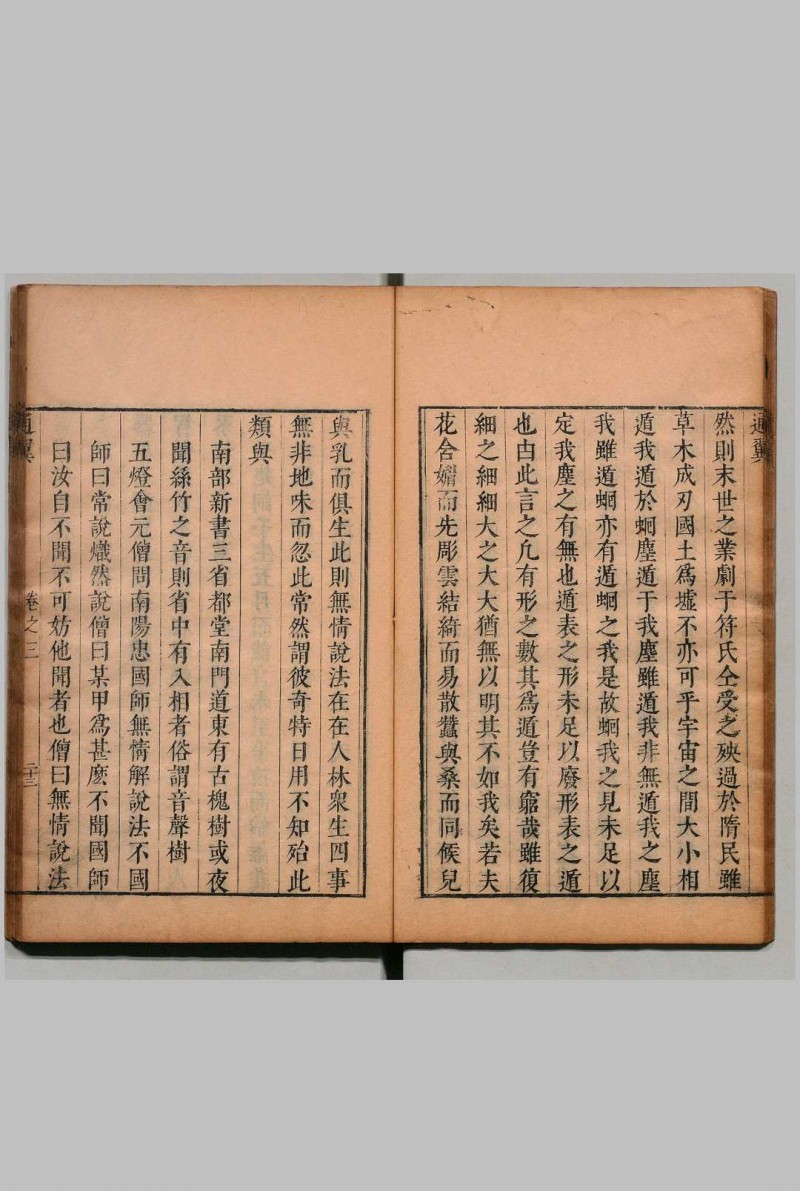 然則末世之業劇于符氏仝受之殃過於隋民雖
草木成刃國土爲墟不亦可乎宇宙之間大小相
遁我遁於蜩塵遁于我塵雖遁我非無遁我之塵
我雖遁蜩亦有遁蜩之我是故蜩我之見未足以
定我塵之有無也遁表之形未足以廢形表之遁
也由此言之凡有形之數其爲遁豈有窮哉雖復
細之細細大之大大猶無以明其不如我矣若夫
花含媚而先彫雲結綺而易散蠶與桑而同候兒
與乳而俱生此則無情說法在在人林衆生四事
無非地味而忽此常然謂彼奇特日用不知殆此
類與
南部新書三省都堂南門道東有古槐樹或夜
聞絲竹之音則省中有入相者俗謂音聲樹
五燈會元僧問南陽忠國師無情解說法不國
師曰常說熾然說僧曰某甲爲甚麽不聞國師
曰汝自不聞不可妨他聞者也僧曰無情說法
卷之三
二十三